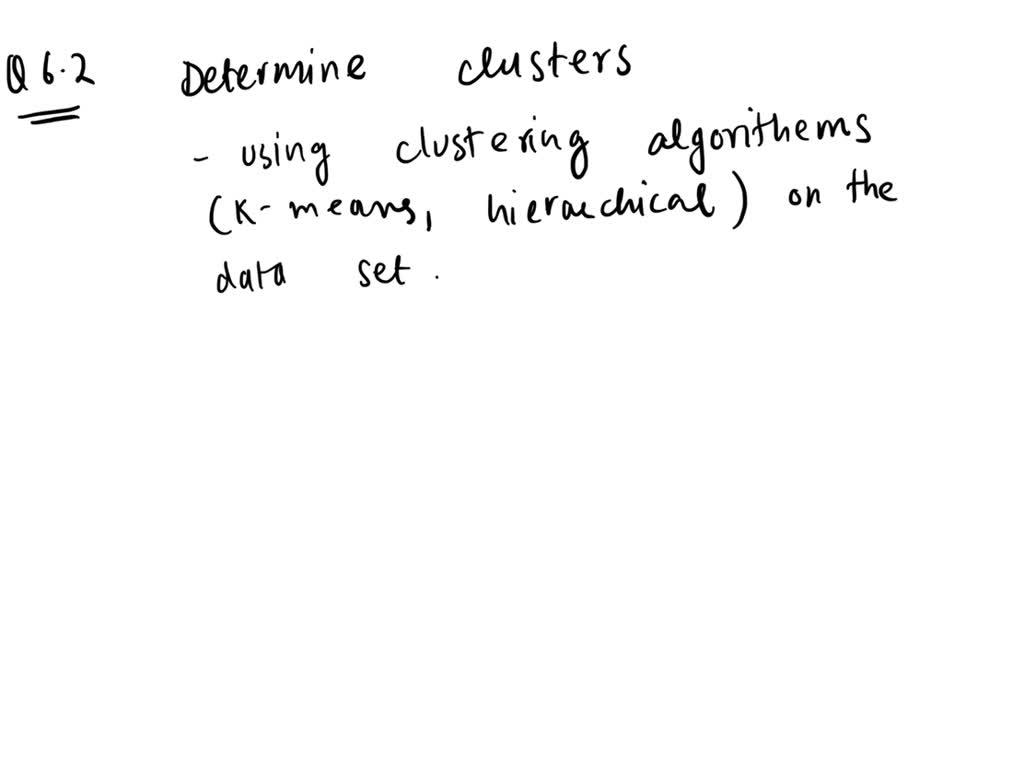 Q 6.2 Determine clusters
- using clustering algorithems
(K-means, hierarchical) on the
data set.